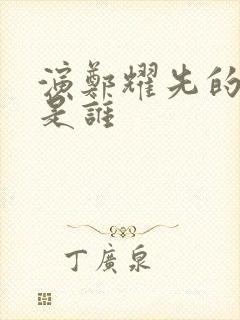 演鄭耀先的
是誰
丁廣泉